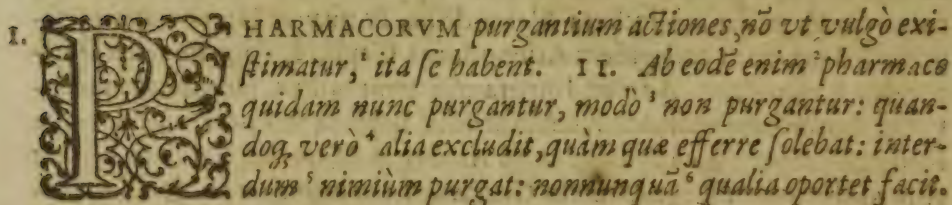 I. PHARMACORVM purgantium actiones, nõ vt vulgò exi-
ſtimatur,¹ ita ſe habent. II. Ab eodẽ enim ²pharmaco
quidam nunc purgantur, modò ³ non purgantur: quan-
doq; verò ⁴ alia excludit, quàm quæ efferre ſolebat: inter-
dum ⁵ nimiùm purgat: nonnunquã ⁶ qualia oportet facit.